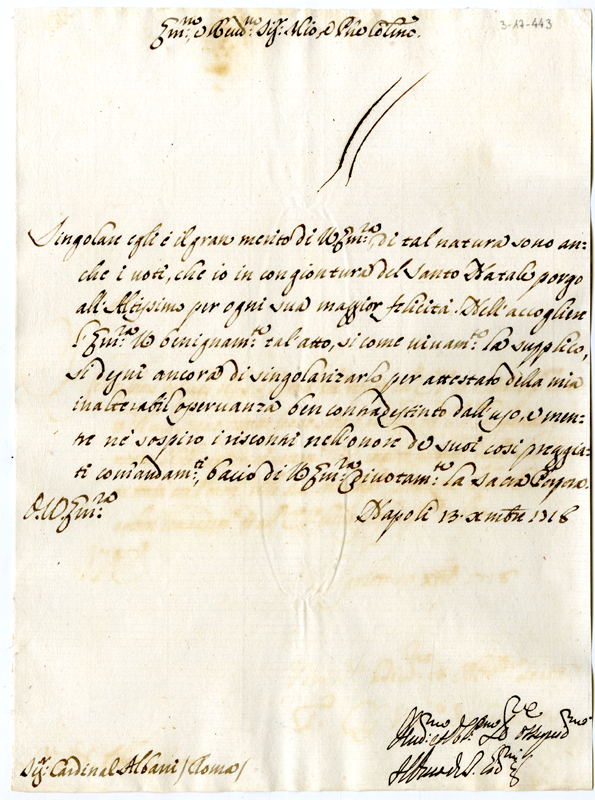 3-17-443
Em.mo, e Reud.mo Sig.r Mio, e Prōe Col.mo
Singolare egli è il gran merito di V Em.za, di tal natura sono an=
che i voti, che io in congiontura del Santo Natale porgo
all'Altissimo per ogni sua maggior felicità. Nell'accogliere
l'Em.za V benignam.te tal'atto, si come vivam.te la supplico,
si degni ancora di singolarizarlo per attestato della mia
inalterabil'osservanza ben contradestinto dall'uso, e men=
tre ne sospiro i riscontri nell'onore de suoi così preggia=
ti comandam.ti, bacio di V Em.za divotam.te la Sacra Porpora.
D. V Em.za
Napoli 13 Xmbre 1718
Sig.r Cardinal Albani /Roma/